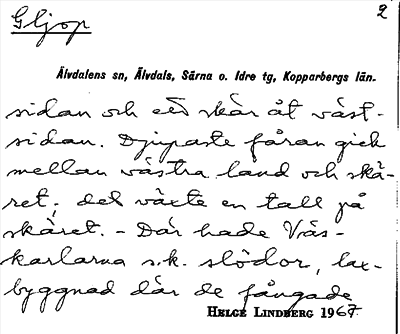 Gljop
2
Älvdalens sn, Älvdals, Särna o. Idre tg, Kopparbergs län.
sidan och ett skär åt väst-
sidan. Djupaste fåran gick
mellan västra land och skä-
ret; det växte en tall på
skäret. - Där hade Väs-
karlarna s.k. slödor, lax-
byggnad där de fångade
HELGE LINDBERG 1967